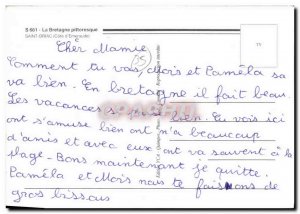 S 661 - La Bretagne pittoresque
SAINT-BRIAC (Côte d'Emeraude)
Cher Mamie
35
Comment tu vas, Moïs et Paméla sa
va bien. En bretagne il fait beau.
Les vacances se passe bien. Tu vois ici
ont s'amuse bien ont n'a beaucoup
d'amis et avec eux ont va souvent à la
plage - Bons maintenant je quitte.
Paméla et Moïs nous te faisons de
gros bissous